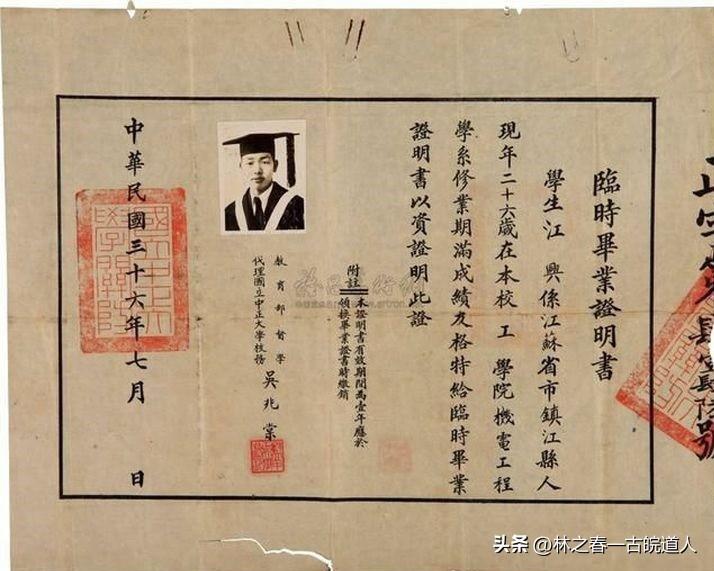 臨時畢業證明書
學生江 興係江蘇省市鎮江縣人
現年二十六歲在本校 工 學院機電工程
學系修業期滿成績及格特給臨時畢業
證明書以資證明此證
附註
本證明書有效期間為壹年應於
領換畢業證書時繳銷
教育部督學
代理國立中正大學校務 吳兆棠
中華民國三十六年七月 日
頭条 @林之春一古皖道人